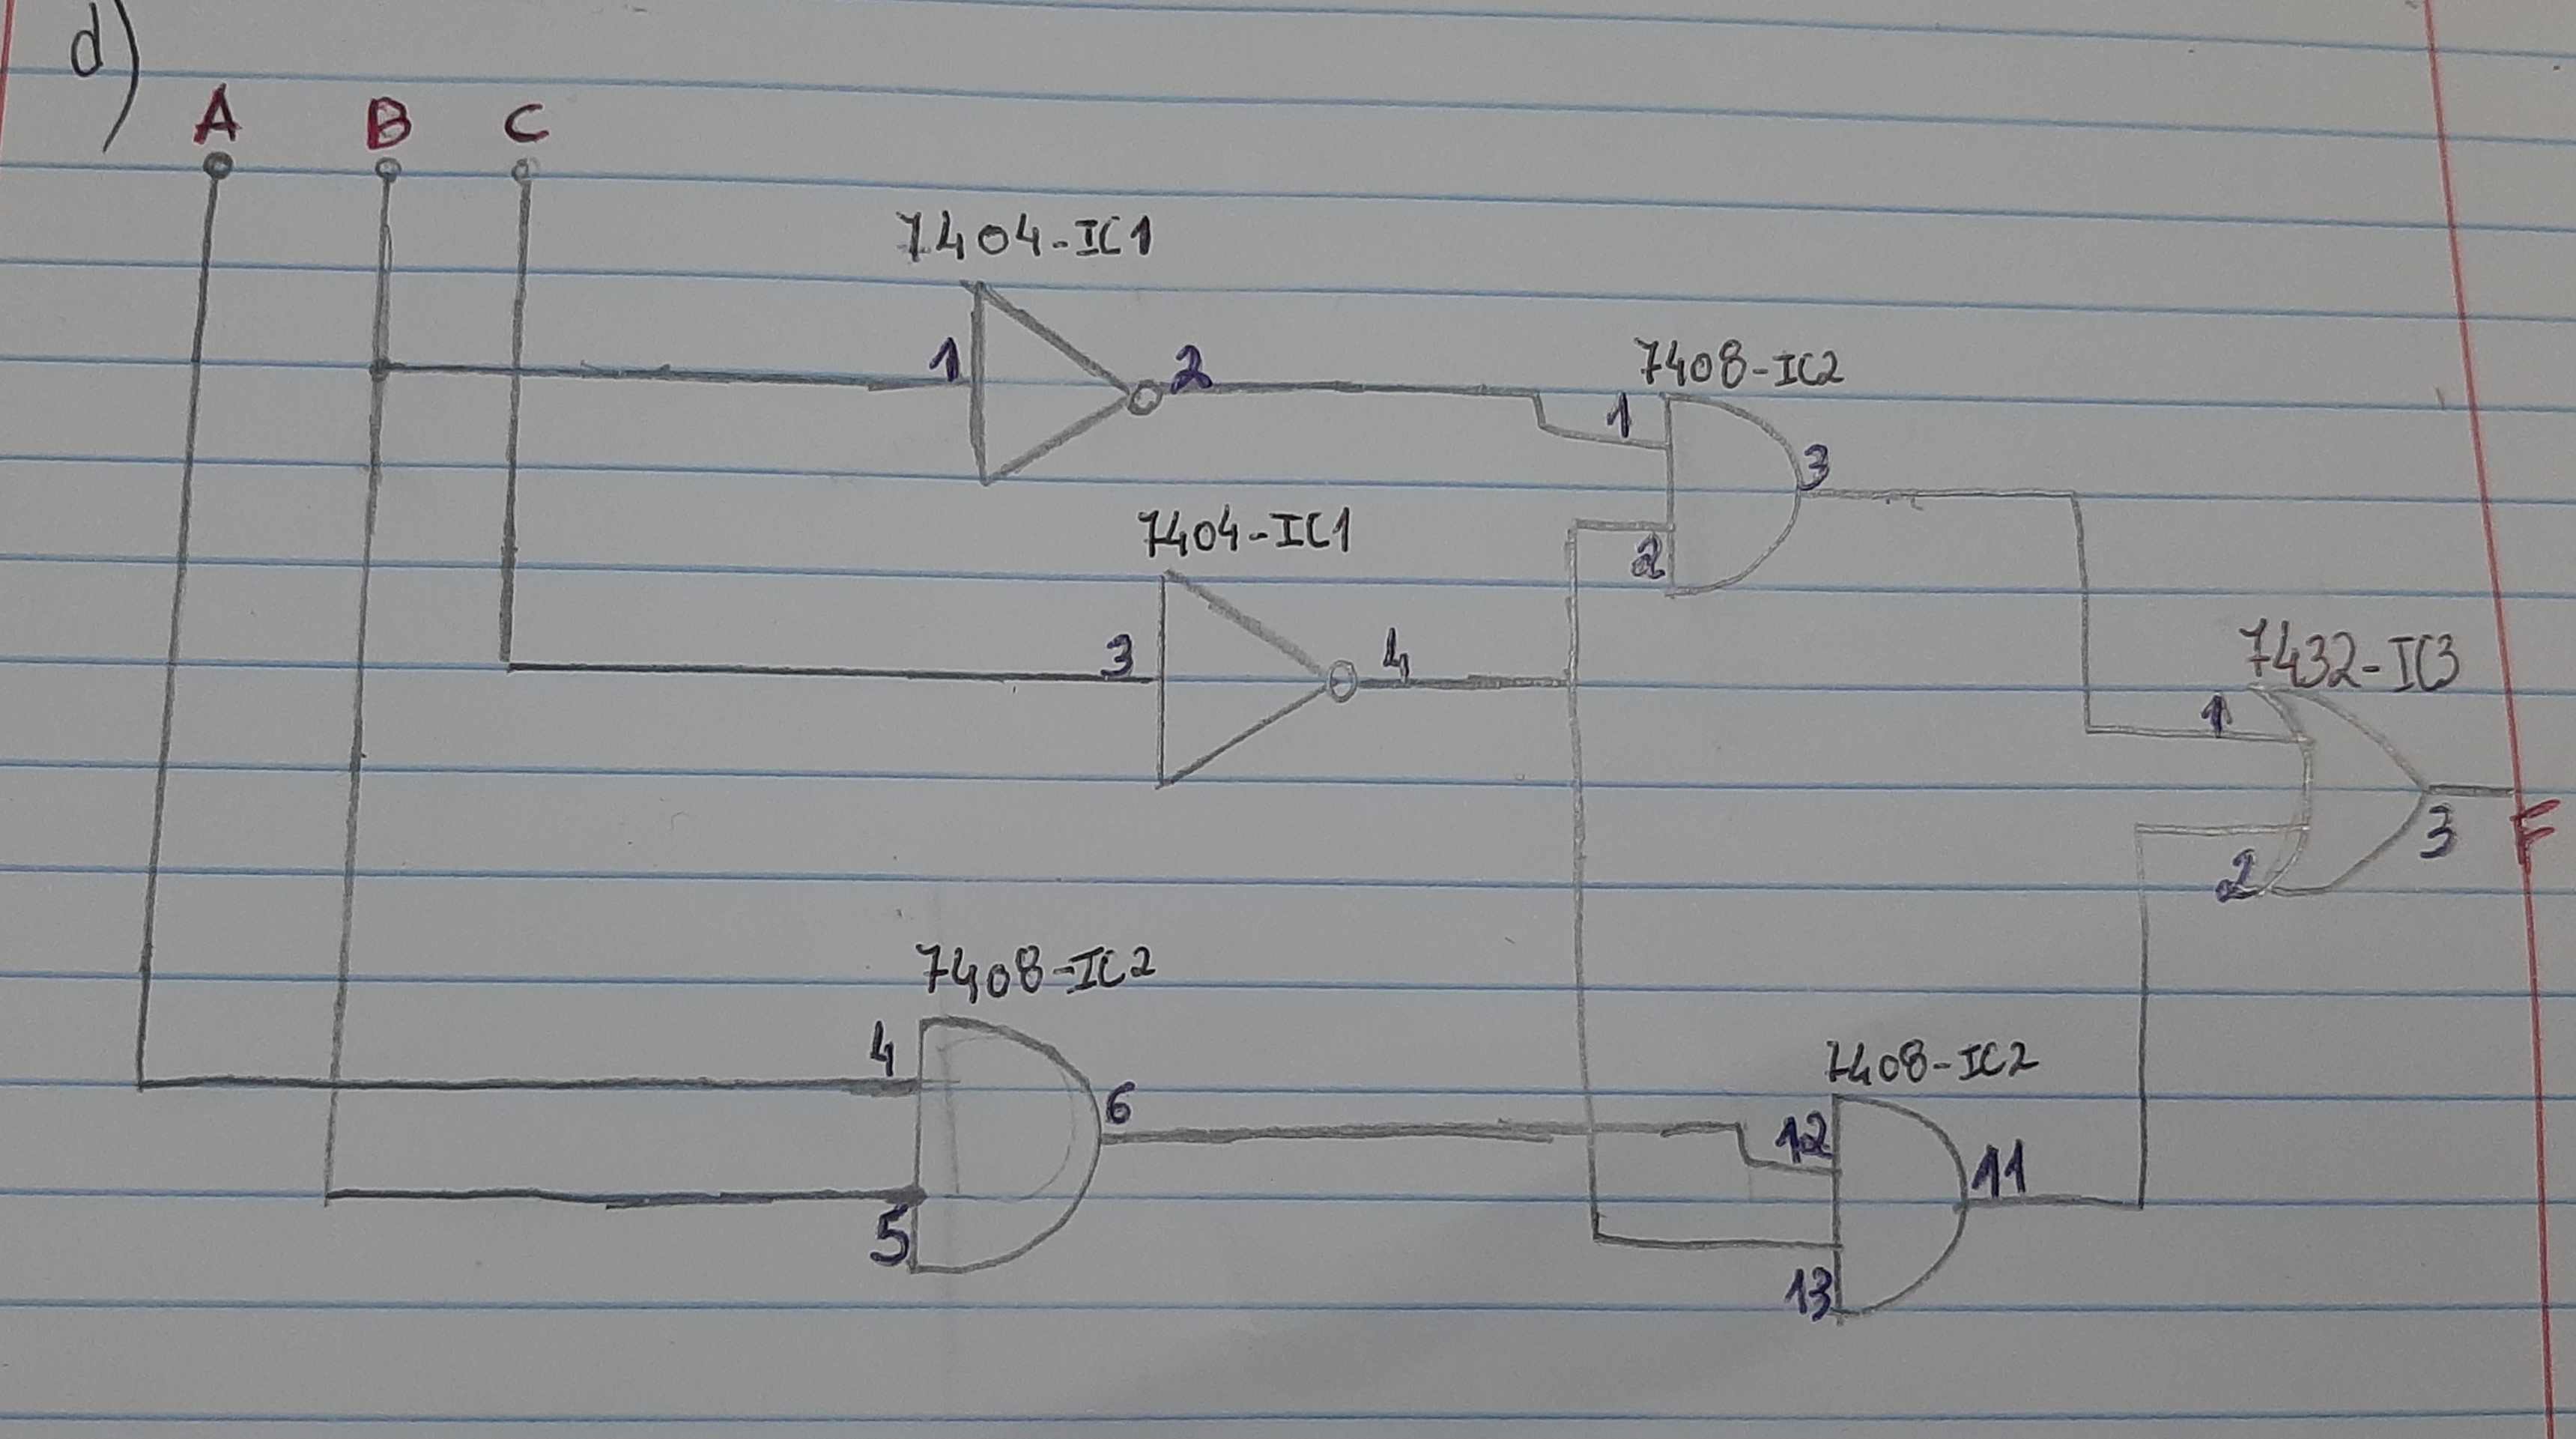 d)
A B C
7404-IC1
1 2
7408-IC2
1
3
2
7404-IC1
3 4
7432-IC3
1
3
2
F
7408-IC2
4
6
5
7408-IC2
12
11
13